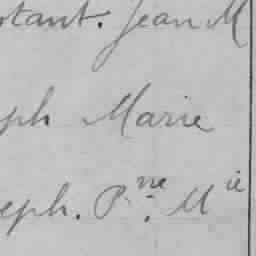 stant. Jean M
eph Marie
eph. P.ne M ie